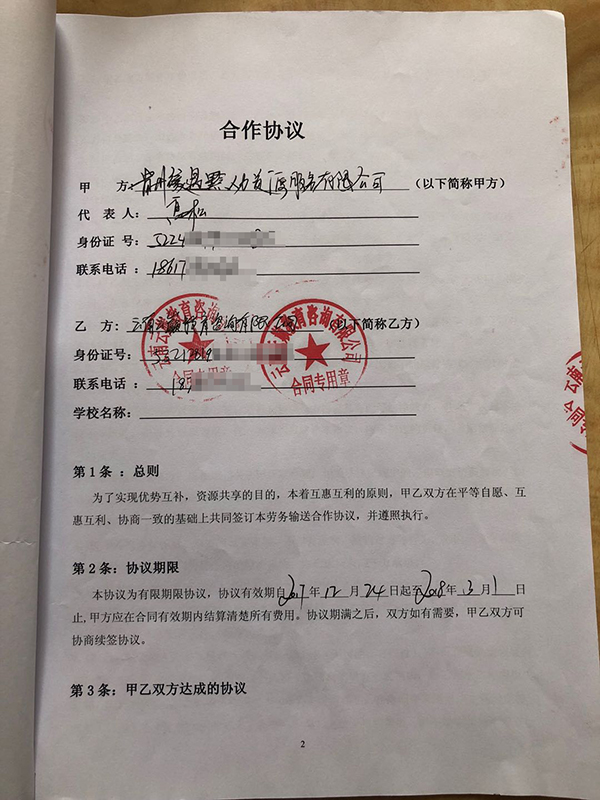 合作协议
甲 方: 贵州 人力资源服务有限公司 (以下简称甲方)
代 表 人:
身份证 号: 5224
联系电话 : 18617
乙 方: 云南 教育咨询有限公司 (以下简称乙方)
身份证号:
联系电话 : 18
学校名称:
云南云 教育咨询有限公司
合同专用章
云南云 教育咨询有限公司
合同专用章
云南云
合同专用章
第 1 条 : 总则
为了实现优势互补,资源共享的目的,本着互惠互利的原则,甲乙双方在平等自愿、互
惠互利、协商一致的基础上共同签订本劳务输送合作协议,并遵照执行。
第 2 条: 协议期限
本协议为有限期限协议,协议有效期自2017年 12 月 24 日起至2018年 3 月 1 日
止,甲方应在合同有效期内结算清楚所有费用。协议期满之后,双方如有需要,甲乙双方可
协商续签协议。
第 3 条: 甲乙双方达成的协议
2